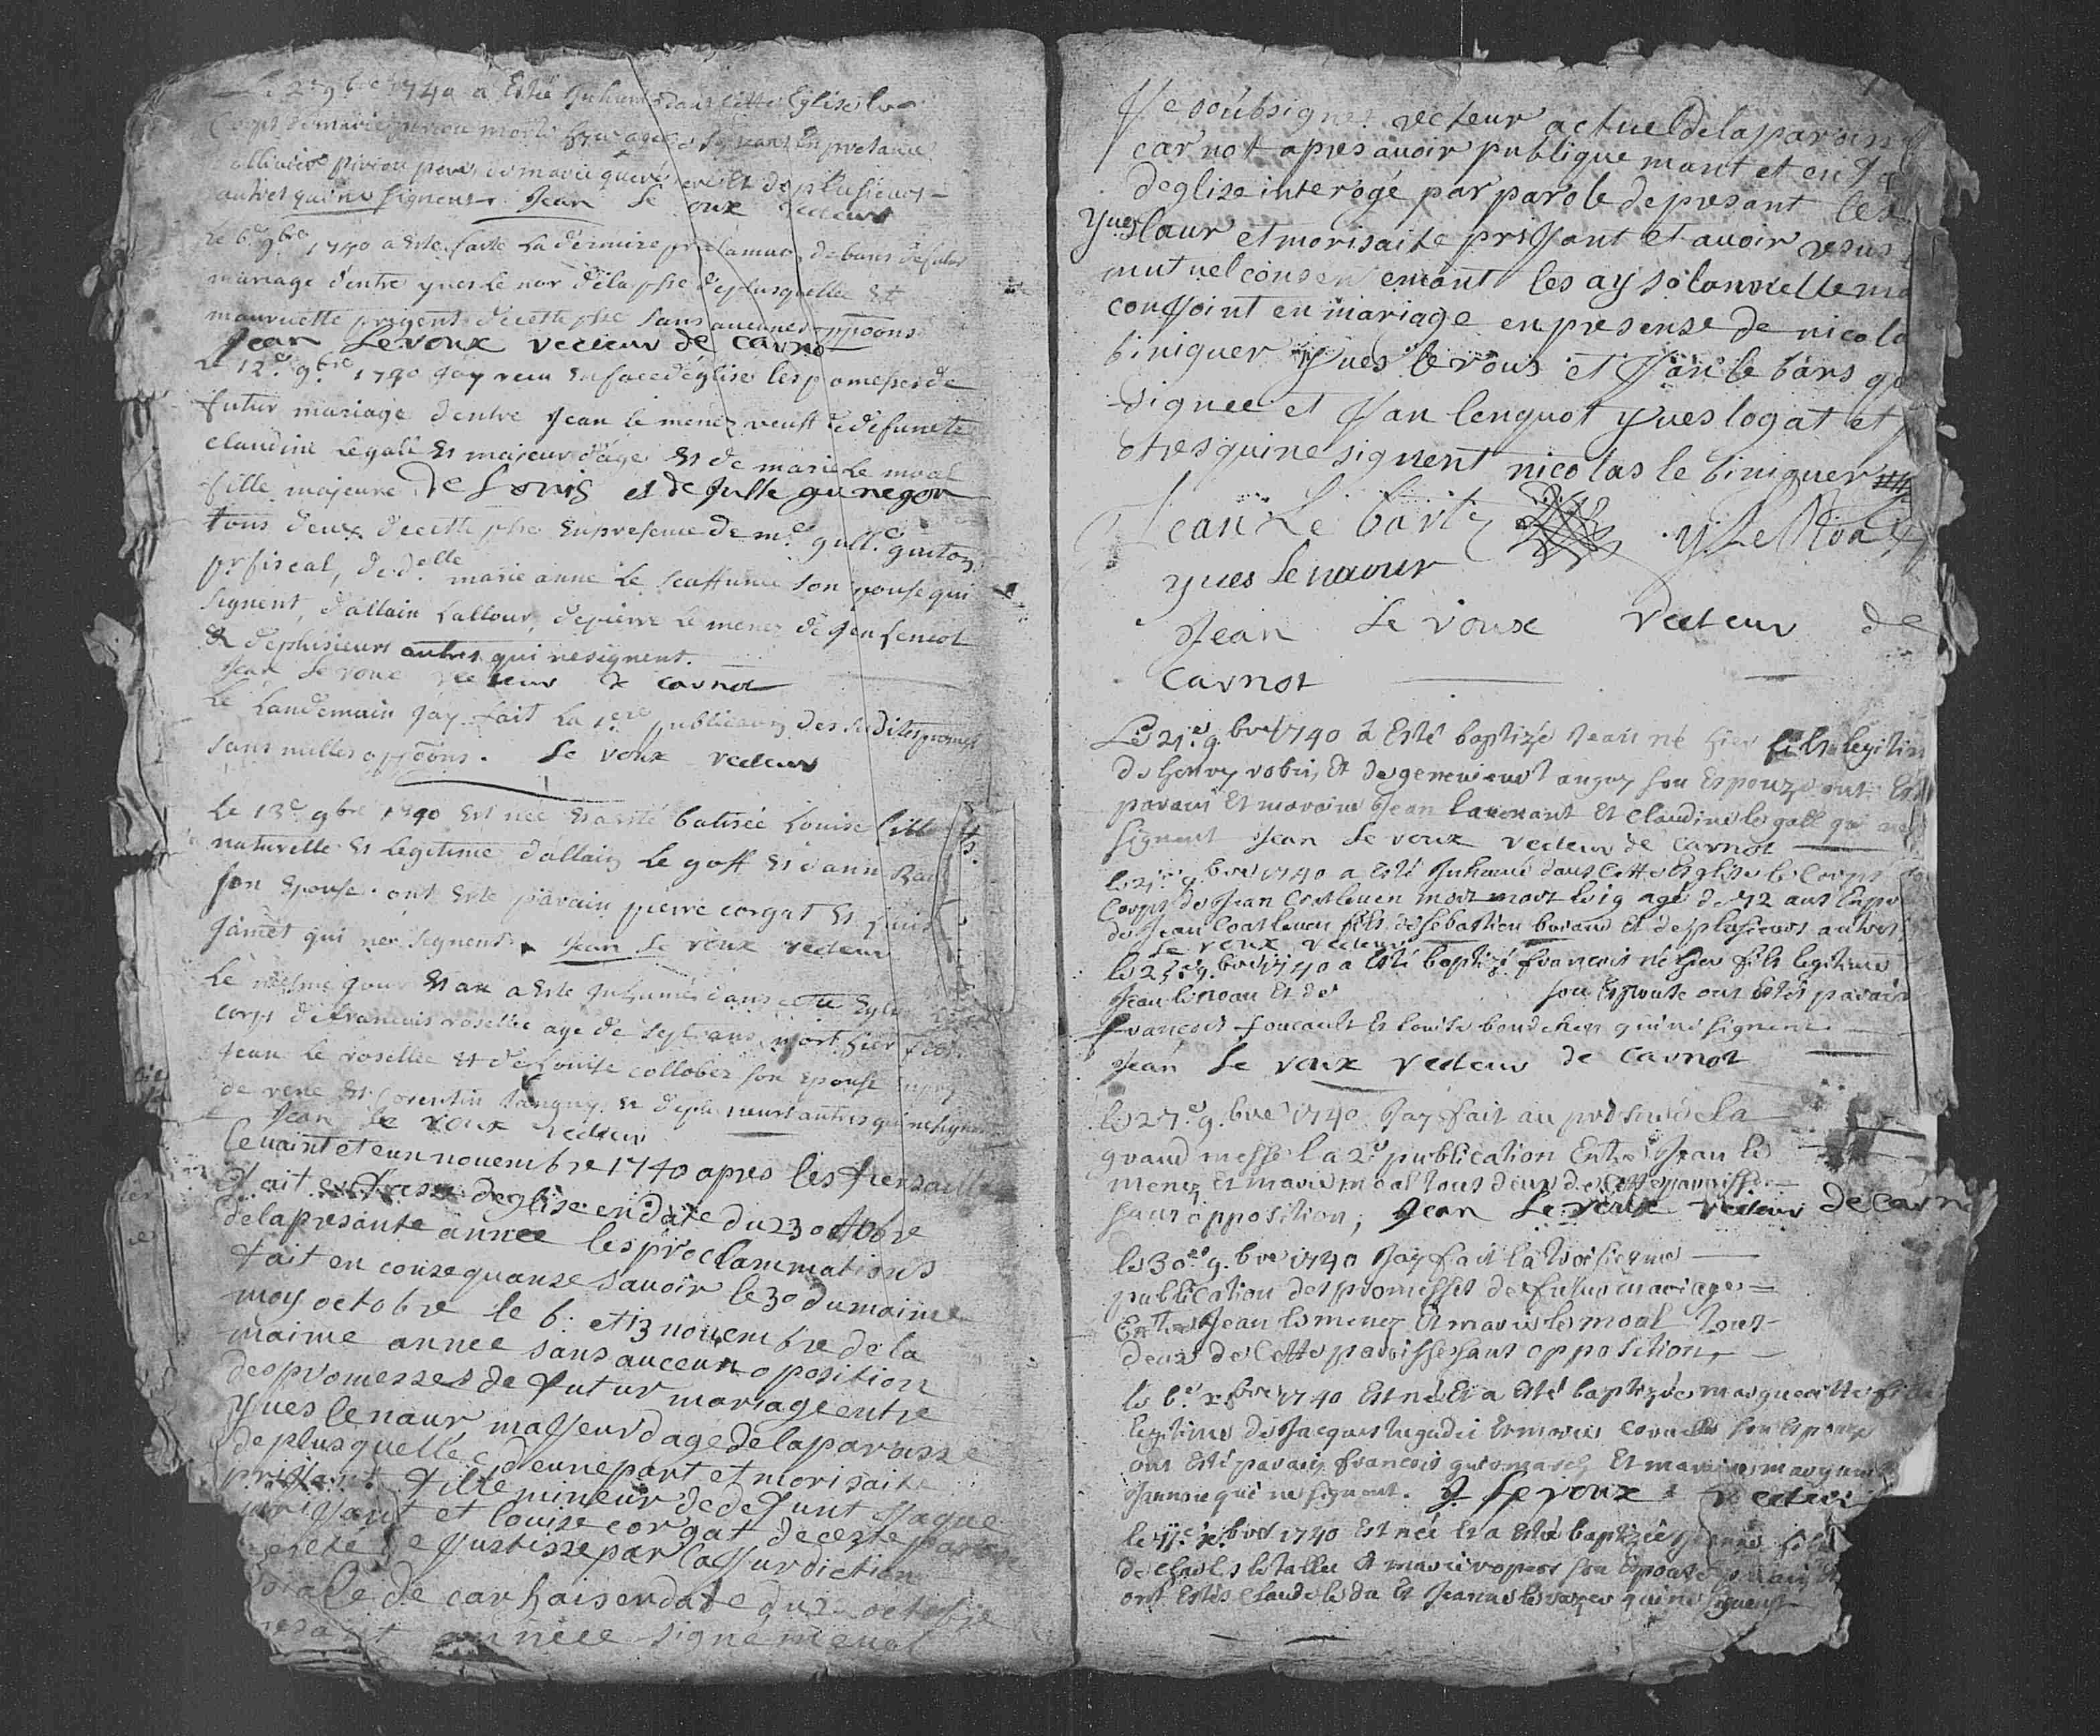 Le 2e 9bre 1740 a Esté Inhumé dans cette Eglise le
Corps de marie piriou morte hyer agée ans En presance
ollivier piriou pere de marie queré et de plusieurs
autres qui ne signent. Jean Le Roux Recteur
Le 6e 9bre 1740 a Esté faitte La derniere proclamaon de bans de futur
mariage d'entre yves le nor de la psse de plusquellec Et
mauricette prigent de cette psse Sans aucunes oppoons
Jean Le roux recteur de carno
Le 12e 9bre 1740 Jay receu En face d'église les promesses de
futur mariage dentre Jean le menez veuff de defuncte
claudine Le galle Et majeur d'áge Et de marie Le moal
fille majeure de Louis et de Julle gunegou
tous deux de cette psse En presence de me guillе guiton
pr fiscal, de delle marie anne Le scaffunec son epouse qui
signent, d'allain Lallour, de pierre Le menez de Jean Lencot
& de plusieurs autres qui ne signent.
Jean Le roux recteur de carnot
Le Landemain Jay fait La 1ere publicaon des susdites promes
sans nulles oppoons. Le roux recteur
Le 13e 9bre 1740 Est née Et a esté batisée Louise fille
naturelle Et Legitime d'allain Le goff Et d'ann
son Epouse. ont Esté parain pierre corgat Et Louise
Jamet qui ne signent. Jean Le roux recteur
Le mesme jour Et an a Esté Inhumé dans cette Eglise Le
corps de francois rosellec age de sept ans, mort hier fils
Jean Le rosellec Et de Louise collober son Epouse en pres
de rene Et Corentin tanguy Et de plusieurs autres qui ne signent
Jean Le roux recteur
le vaint et eun nouembre 1740 apres les fiensaille
fait en fase deglise en date du 23 octobre
de la presante annee les proclammations
fait en consequanse savoir le 30 du maime
moy octobre le 6: et 13 nouembre de la
maime annee sans auceun oposition
des promesses de futur mariage entre
Yves le naur majeur dage de la paroisse
de plusquellec deune part et morisaite
prisant fille mineur de defunt Jaque
prisant et louise corgat de ceste paroisse
de Justisse par la Jurdiction
roiale de carhais en date du 2 octobre
annéee signé menal
Je soubsigne recteur actuel de la parois
carnot apres auoir publique mant et en fa
deglise interogé par parole de presant les
yves laur et morisaite prisant et auoir resus
mutuel consentemant les ay solannelle ma
conjoint en mariage en presense de nicola
biniguer yves le rous et Jan le bars qu
signee et Jan lenquot yves logat et
otres qui ne signent nicolas le biniguer
Jean Le bartz y Le Roux
yves le naour
Jean Le roux recteur de
carnot
Le 21e 9.bre 1740 a Esté baptizé Jean né hier fils legitim
de henry robin Et de genevieve tanguy son Espouze ont Esté
parain Et maraine Jean lavenant Et claudine le gall qui ne
signent Jean Le roux recteur de carnot
le 21e 9.bre 1740 a Esté Inhumé dans Cette Eglise le Corps
Corps de Jean Coatleven mort le 19 agé de 72 ans En pre
de Jean Coatleven fils de Sebastien et de plusieurs autres
Le roux recteur
le 25e 9.bre 1740 a Esté baptizé francois né hier fils legitime
Jean lineau Et de son Espouse ont Estés parain
francois foucault Et louise boudeher qui ne signent
Jean Le roux recteur de carnot
le 27e 9.bre 1740 Jay fait au prosne de la
grand messe la 2e publication Entre Jean le
menez Et marie moal tous deux de Cette parroisse
sans opposition, Jean Le roux recteur de carno
le 30e 9.bre 1740 Jay fait la troisiesme
publication des promesses de futur mariage
Entre Jean le menez Et marie le moal tous
deux de Cette parroisse sans opposition,
le 6e xbre 1740 Est née Et a Esté baptizée margueritte fille
legitime de Jacques Et marie son Espouze
ont Esté parain francois guiomarch Et maraine marguerit
qui ne signent. J Le roux recteur
le 11e xbre 1740 Est née Et a Esté baptizée fille
de charles le tallec Et marie ropars son Epouse parain Et
ont Estés claude le da Et Jeanne qui ne signent